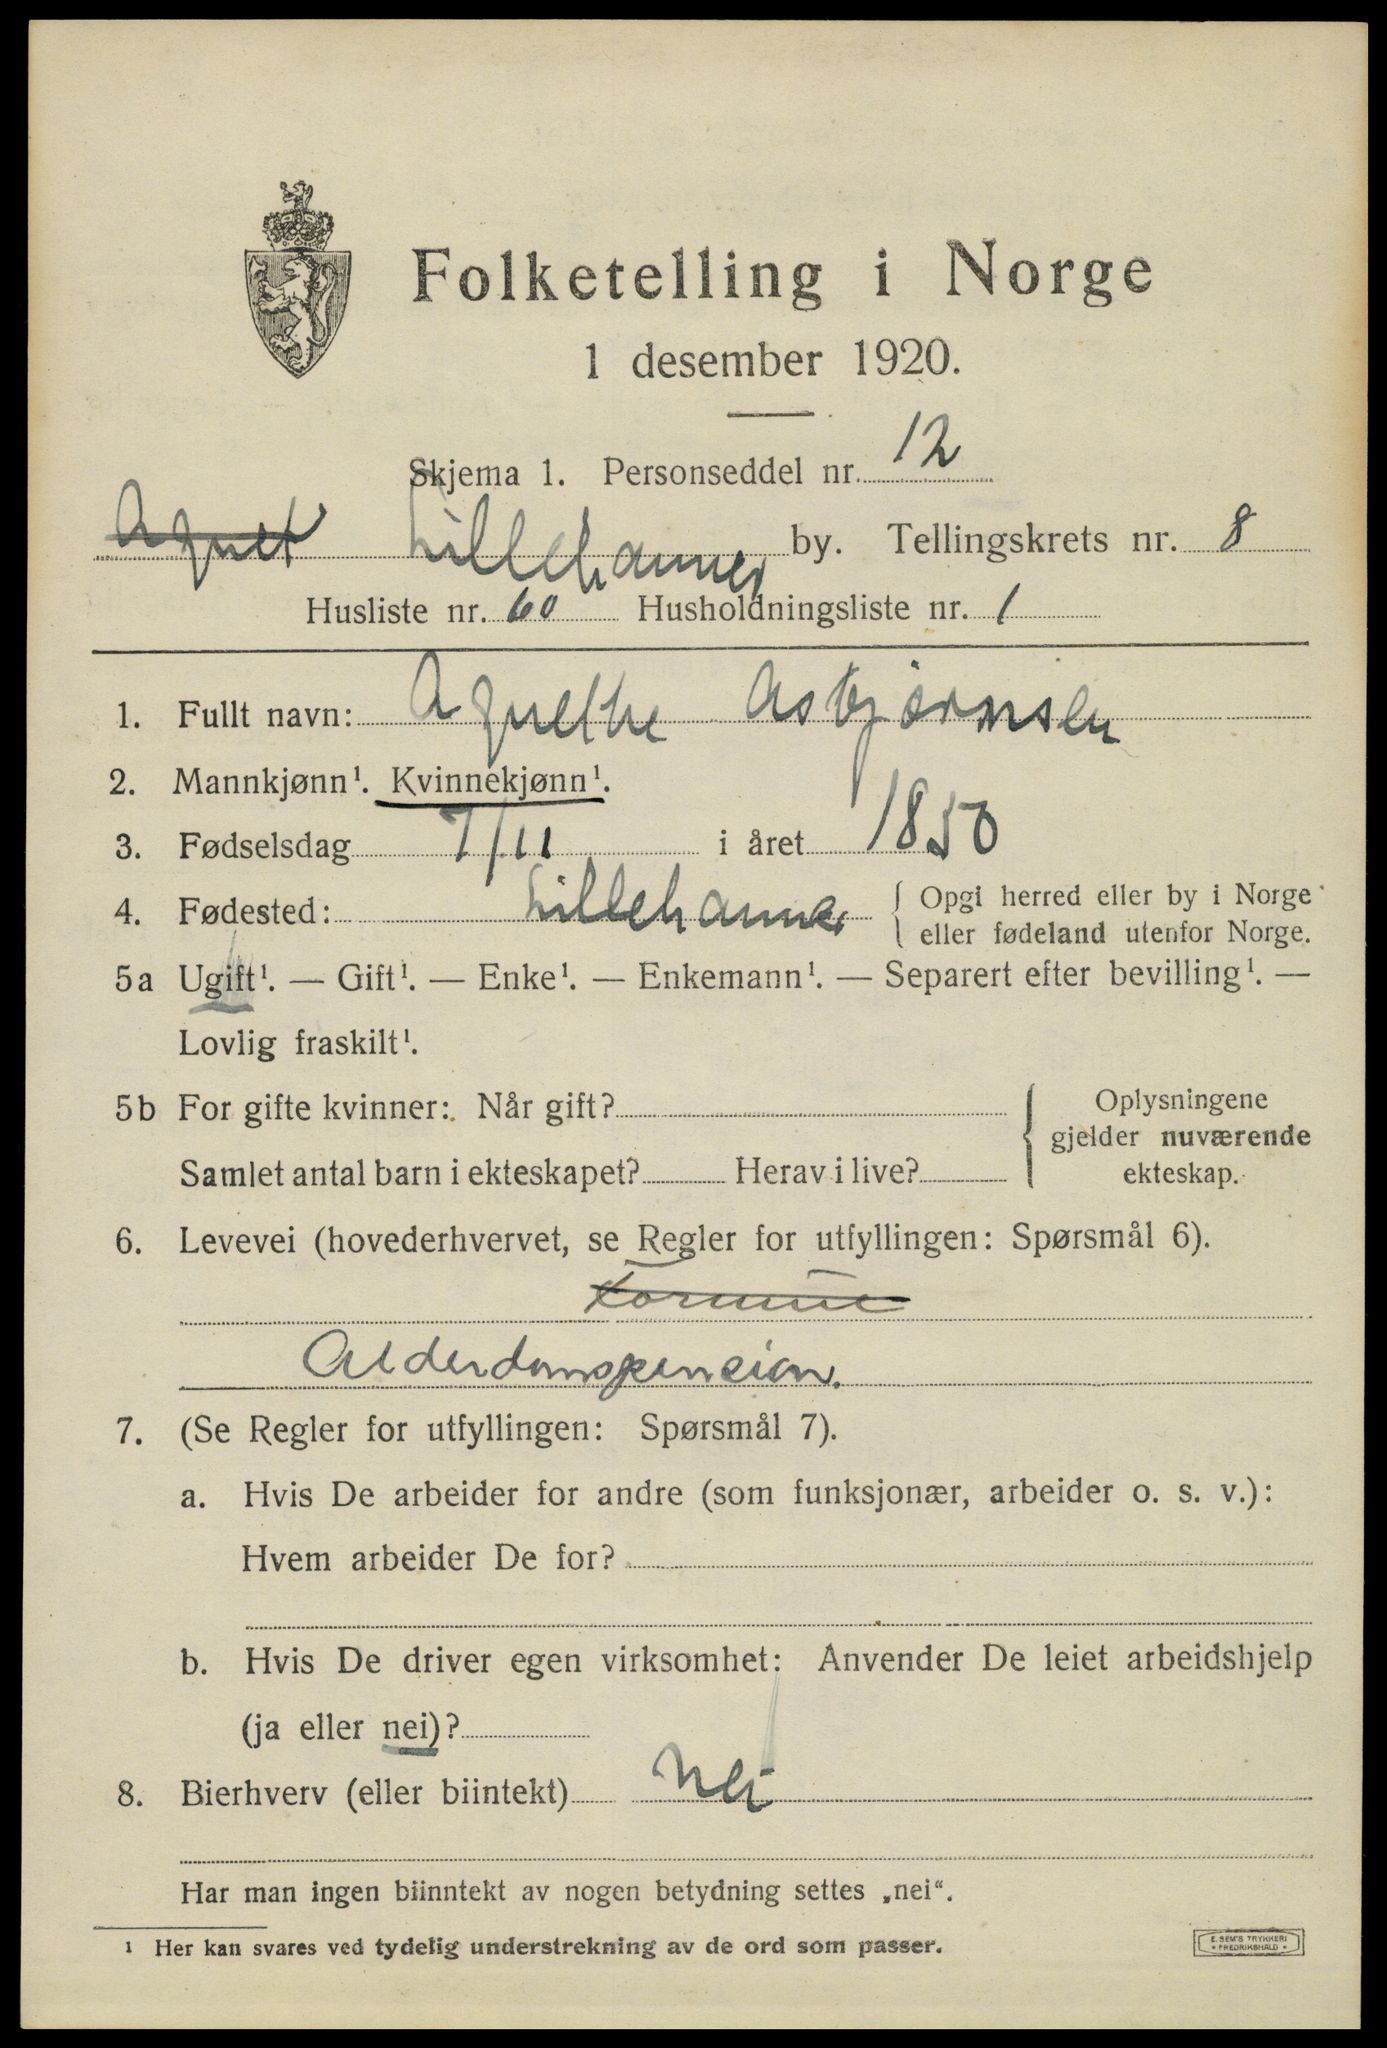 Folketelling i Norge
1 desember 1920.
Skjema 1. Personseddel nr. 12
Agnet Lillehammer by. Tellingskrets nr. 8
Husliste nr. 60 Husholdningsliste nr. 1
1. Fullt navn: Agnethe Asbjørnsen
2. Mannkjønn¹. Kvinnekjønn¹.
3. Fødselsdag 7/11 i året 1850
4. Fødested: Lillehammer { Opgi herred eller by i Norge
eller fødeland utenfor Norge.
5a Ugift¹. — Gift¹. — Enke¹. — Enkemann¹. — Separert efter bevilling¹. —
Lovlig fraskilt¹.
5b For gifte kvinner: Når gift? { Oplysningene
gjelder nuværende
Samlet antal barn i ekteskapet? Herav i live? ekteskap.
6. Levevei (hovederhvervet, se Regler for utfyllingen: Spørsmål 6).
Formue
Alderdomspension.
7. (Se Regler for utfyllingen: Spørsmål 7).
a. Hvis De arbeider for andre (som funksjonær, arbeider o. s. v.):
Hvem arbeider De for?
b. Hvis De driver egen virksomhet: Anvender De leiet arbeidshjelp
(ja eller nei)?
8. Bierhverv (eller biintekt) Nei
Har man ingen biinntekt av nogen betydning settes „nei“.
¹ Her kan svares ved tydelig understrekning av de ord som passer.
E. SEM'S TRYKKERI
• FREDRIKSHALD •